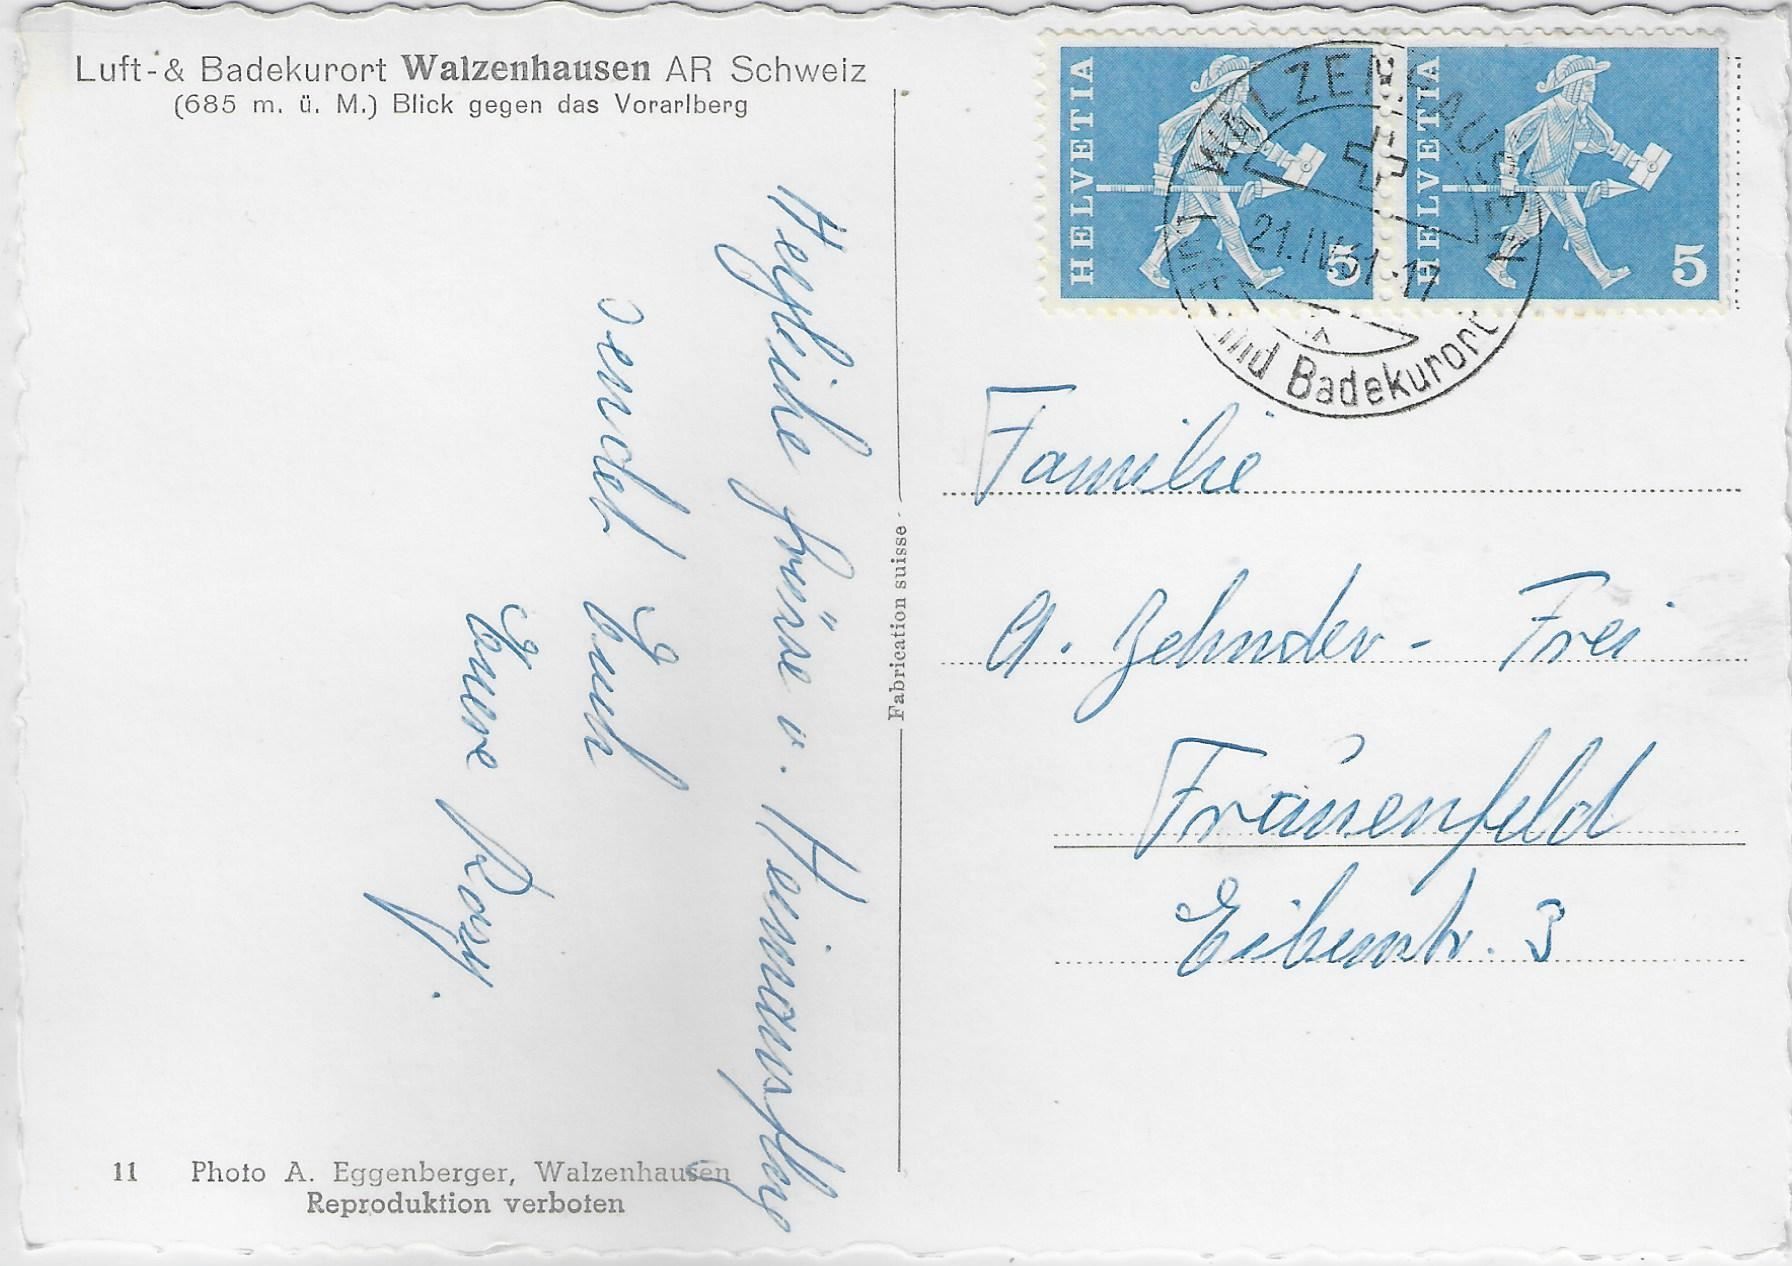 Luft-& Badekurort Walzenhausen AR Schweiz
(685 m. ü. M.) Blick gegen das Vorarlberg
HELVETIA 5
HELVETIA 5
WALZENHAUSEN
21.IV.61-17
Luft- und Badekurort
Herzliche Grüsse v.
sendet Euch
Eure Rösy.
Fabrication suisse
Familie
A. Zehnder-Frei
Frauenfeld
Eibenstr. 3
11 Photo A. Eggenberger, Walzenhausen
Reproduktion verboten